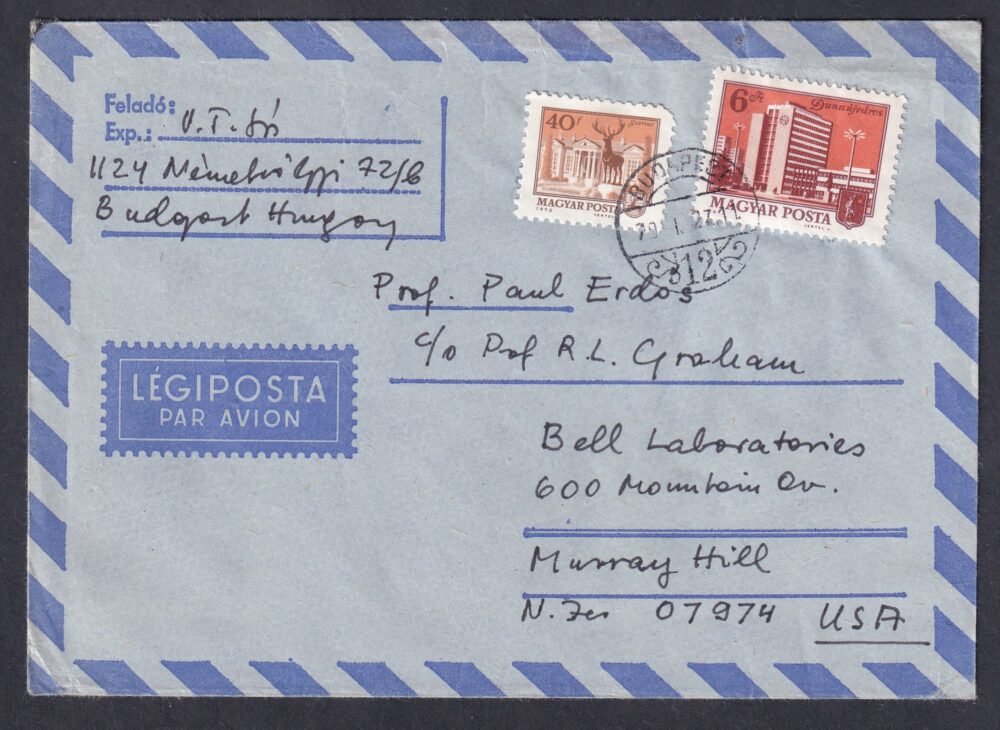 Feladó:
Exp.: V. T. Sós
1124 Németvölgyi 72/b
Budapest Hungary
40 f
Szarvas
MAGYAR POSTA
1972
6 Ft
Dunaújváros
MAGYAR POSTA
BUDAPEST
312
Prof. Paul Erdős
c/o Prof R. L. Graham
LÉGIPOSTA
PAR AVION
Bell Laboratories
600 Mountain Av.
Murray Hill
N. Jer 07974 USA